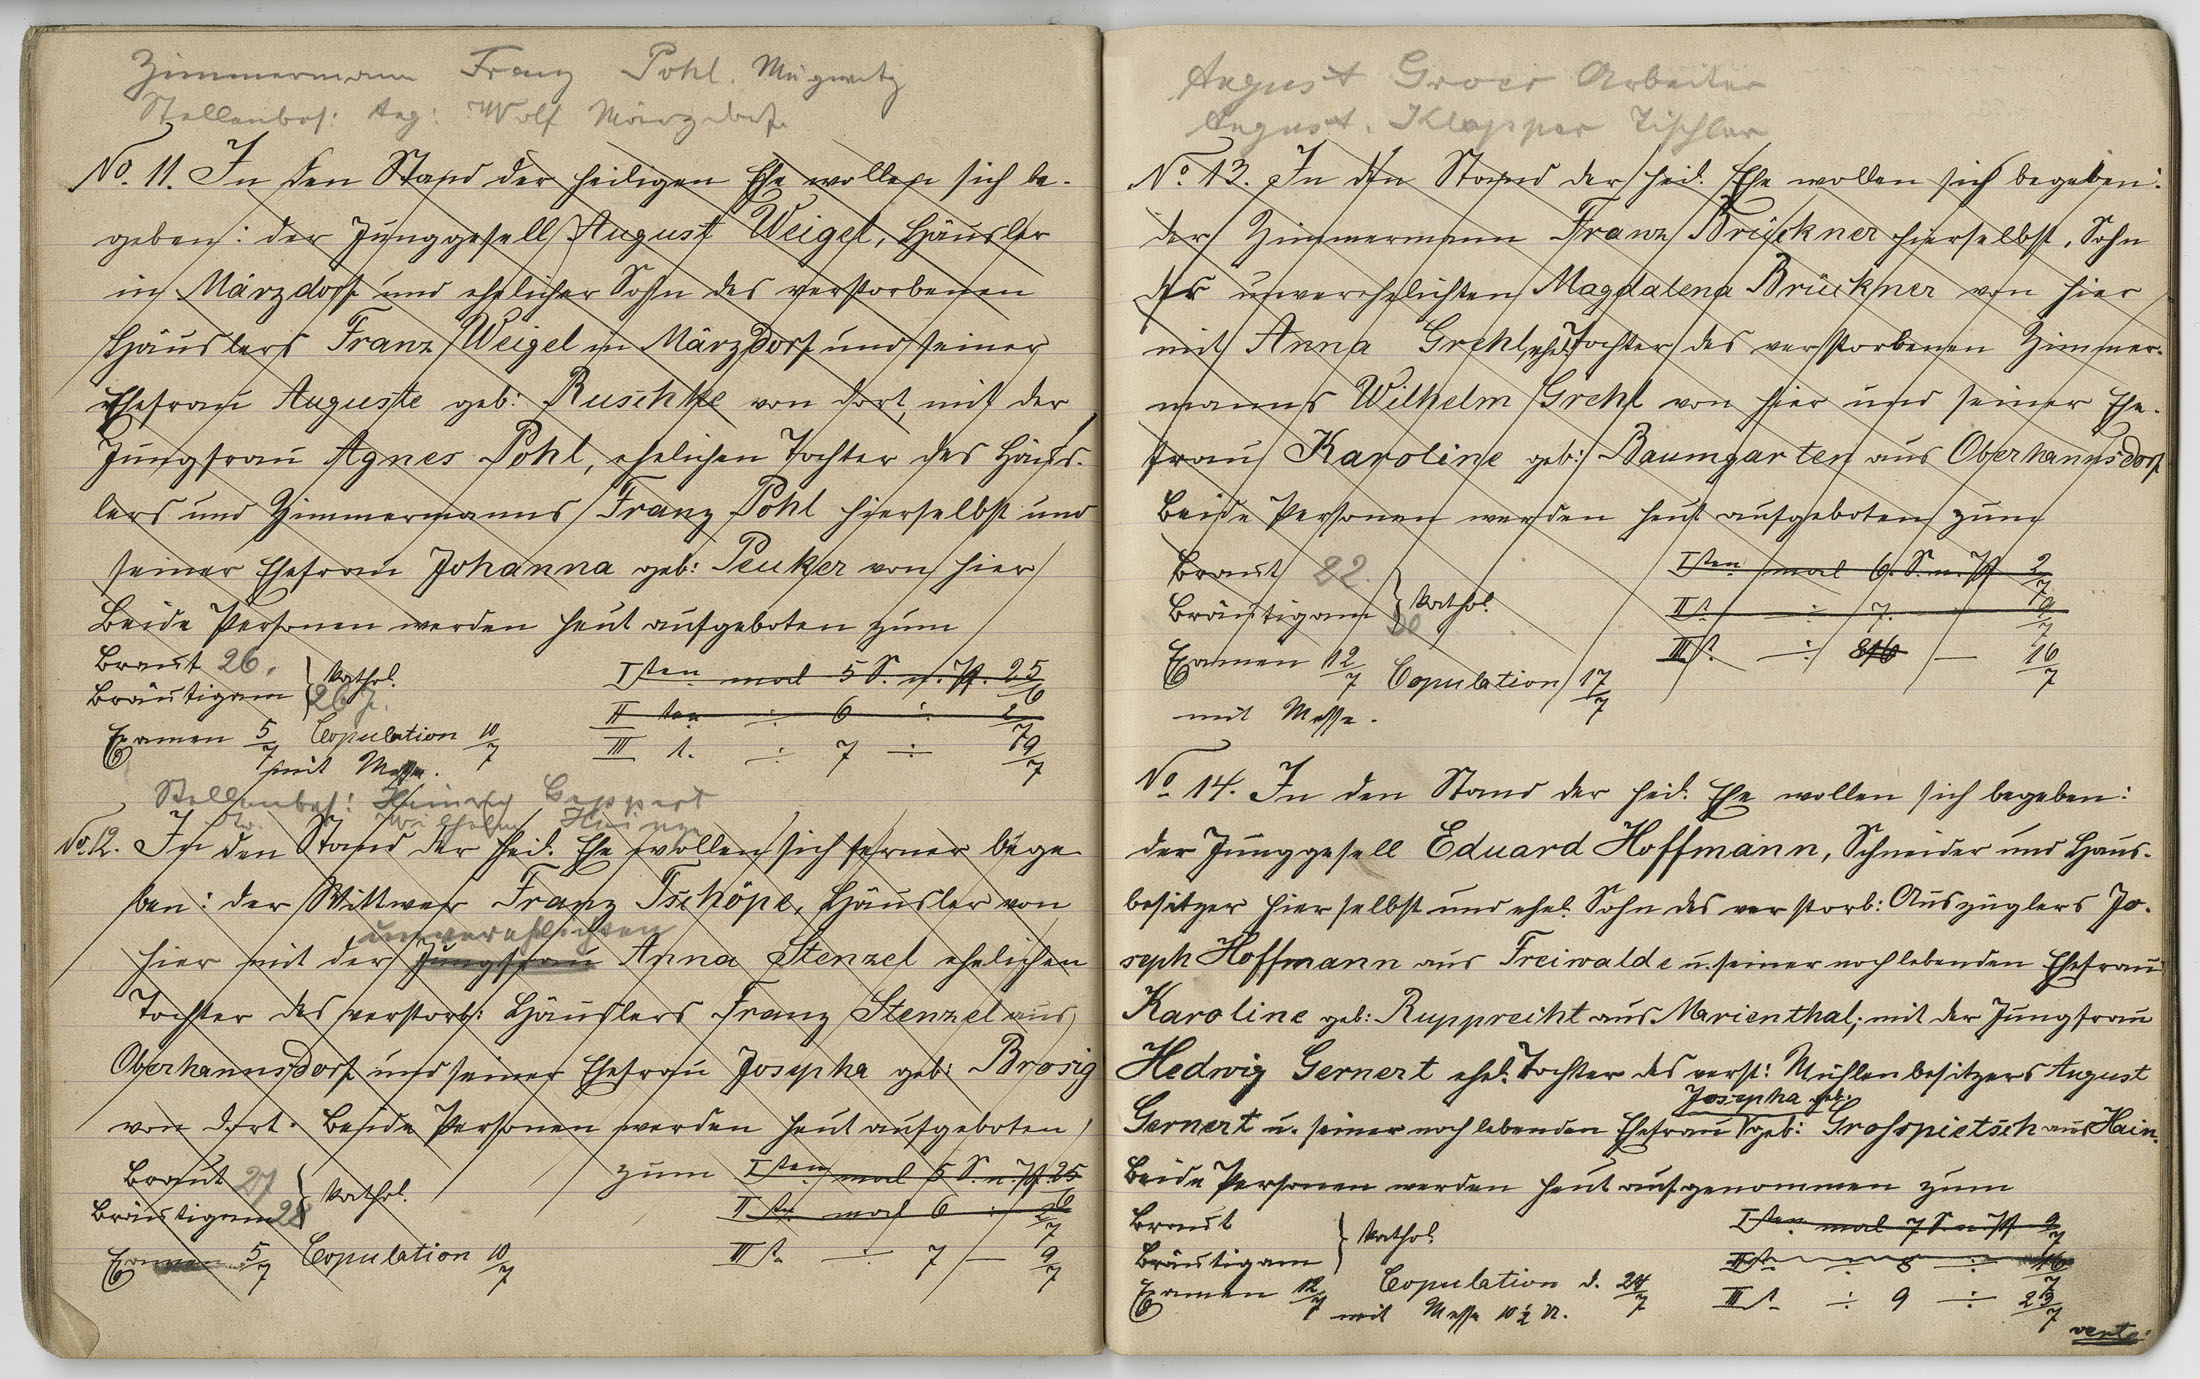 Zimmermann Franz Pohl. Mügwitz
Stellenbes: Aug: Wolf Märzdorf.
No. 11. In den Stand der heiligen Ehe wollen sich be-
geben: der Junggesell August Weigel, Häusler
in Märzdorf und ehelicher Sohn des verstorbenen
Häuslers Franz Weigel in Märzdorf und seiner
Ehefrau Auguste geb: Ruschke von dort, mit der
Jungfrau Agnes Pohl, ehelichen Tochter des Häus-
lers und Zimmermanns Franz Pohl hierselbst und
seiner Ehefrau Johanna geb: Peuker von hier
Beide Personen werden heut aufgeboten zum
Braut 26. } kathol. Isten mal 5 S. n. Pf. 25/6
Bräutigam 26 J. II ten ÷ 6 ÷ 2/7
Examen 5/7 Copulation 10/7 III t. ÷ 7 ÷ 9/7
mit Messe.
Stellenbes: Heinrich Geppert
do. Wilhelm Heinze
No. 12. In den Stand der heil. Ehe wollen sich ferner bege-
ben: der Wittwer Franz Tschöpe, Häusler von
unverehlichten
hier mit der Jungfrau Anna Stenzel ehelichen
Tochter des verstorb: Häuslers Franz Stenzel aus
Oberhannsdorf und seiner Ehefrau Josepha geb: Brosig
von dort. Beide Personen werden heut aufgeboten
Braut 27 } kathol. zum Isten mal 5 S. n. Pf. 25/6
Bräutigam 28 II ten mal 6 ÷ 2/7
Examen 5/7 Copulation 10/7 III t. ÷ 7 — 9/7
August Groer Arbeiter
August Klapper Tischler
No. 13. In den Stand der heil. Ehe wollen sich begeben:
der Zimmermann Franz Brückner hierselbst, Sohn
der unverehelichten Magdalena Brückner von hier
mit Anna Grehl, ehel. Tochter des verstorbenen Zimmer-
manns Wilhelm Grehl von hier und seiner Ehe-
frau Karoline geb: Baumgarten aus Oberhannsdorf
Beide Personen werden heut aufgeboten zum
Braut 22. } kathol. Isten mal 6. S. n. Pf. 2/7
Bräutigam II t. ÷ 7. ÷ 9/7
Examen 12/7 Copulation 17/7 III t. ÷ 8 — 16/7
mit Messe.
No. 14. In den Stand der heil. Ehe wollen sich begeben:
der Junggesell Eduard Hoffmann, Schneider und Haus-
besitzer hierselbst und ehel. Sohn des verstorb: Auszüglers Jo-
seph Hoffmann aus Freiwalde u. seiner noch lebenden Ehefrau
Karoline geb: Rupprecht aus Marienthal; mit der Jungfrau
Hedwig Gernert ehel. Tochter des verst: Mühlenbesitzers August
Josepha geb:
Gernert u. seiner noch lebenden Ehefrau geb: Grosspietsch aus Hain.
Beide Personen werden heut aufgenommen zum
Braut } kathol. Isten mal 7 S. n. Pf. 9/7
Bräutigam II t. ÷ 8 ÷ 16/7
Examen 12/7 Copulation d. 24/7 III t. ÷ 9 ÷ 23/7
mit Messe 10 ½ U.
verte: